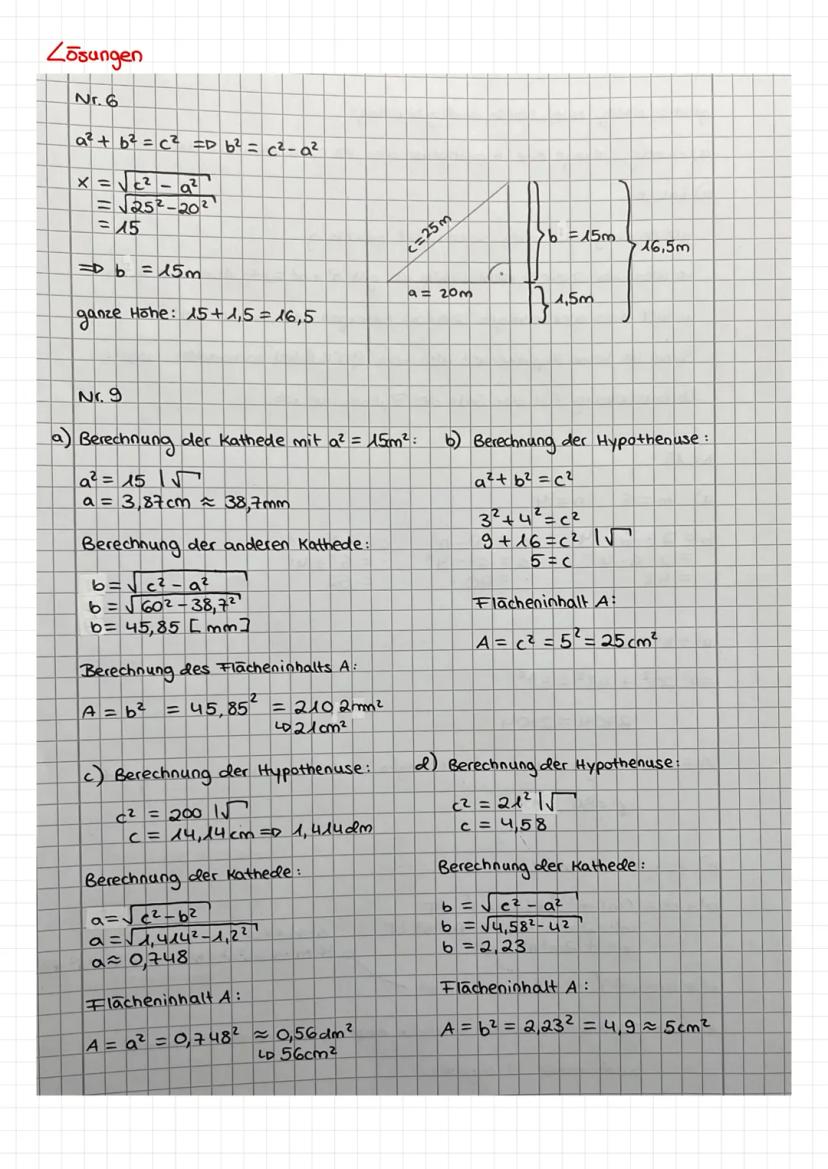 Lösungen
Nr. 6
a² + b² = c² => b² = c² - a²
x = √c² - a²
= √25² - 20²
= 15
=> b = 15m
ganze Höhe: 15 + 1,5 = 16,5
c = 25m
a = 20m
b = 15m
1,5m
16,5m
Nr. 9
a) Berechnung der Kathede mit a² = 15m²:
a² = 15 |√
a = 3,87cm ≈ 38,7mm
Berechnung der anderen Kathede:
b = √c² - a²
b = √60² - 38,7²
b = 45,85 [mm]
Berechnung des Flächeninhalts A:
A = b² = 45,85² = 2102mm²
↳ 21cm²
b) Berechnung der Hypothenuse:
a² + b² = c²
3² + 4² = c²
9 + 16 = c² |√
5 = c
Flächeninhalt A:
A = c² = 5² = 25cm²
c) Berechnung der Hypothenuse:
c² = 200 |√
c = 14,14cm => 1,414dm
Berechnung der Kathede:
a = √c² - b²
a = √1,414² - 1,2²
a ≈ 0,748
Flächeninhalt A:
A = a² = 0,748² ≈ 0,56dm²
↳ 56cm²
d) Berechnung der Hypothenuse:
c² = 21² |√
c = 4,58
Berechnung der Kathede:
b = √c² - a²
b = √4,58² - 4²
b = 2,23
Flächeninhalt A:
A = b² = 2,23² = 4,9 ≈ 5cm²